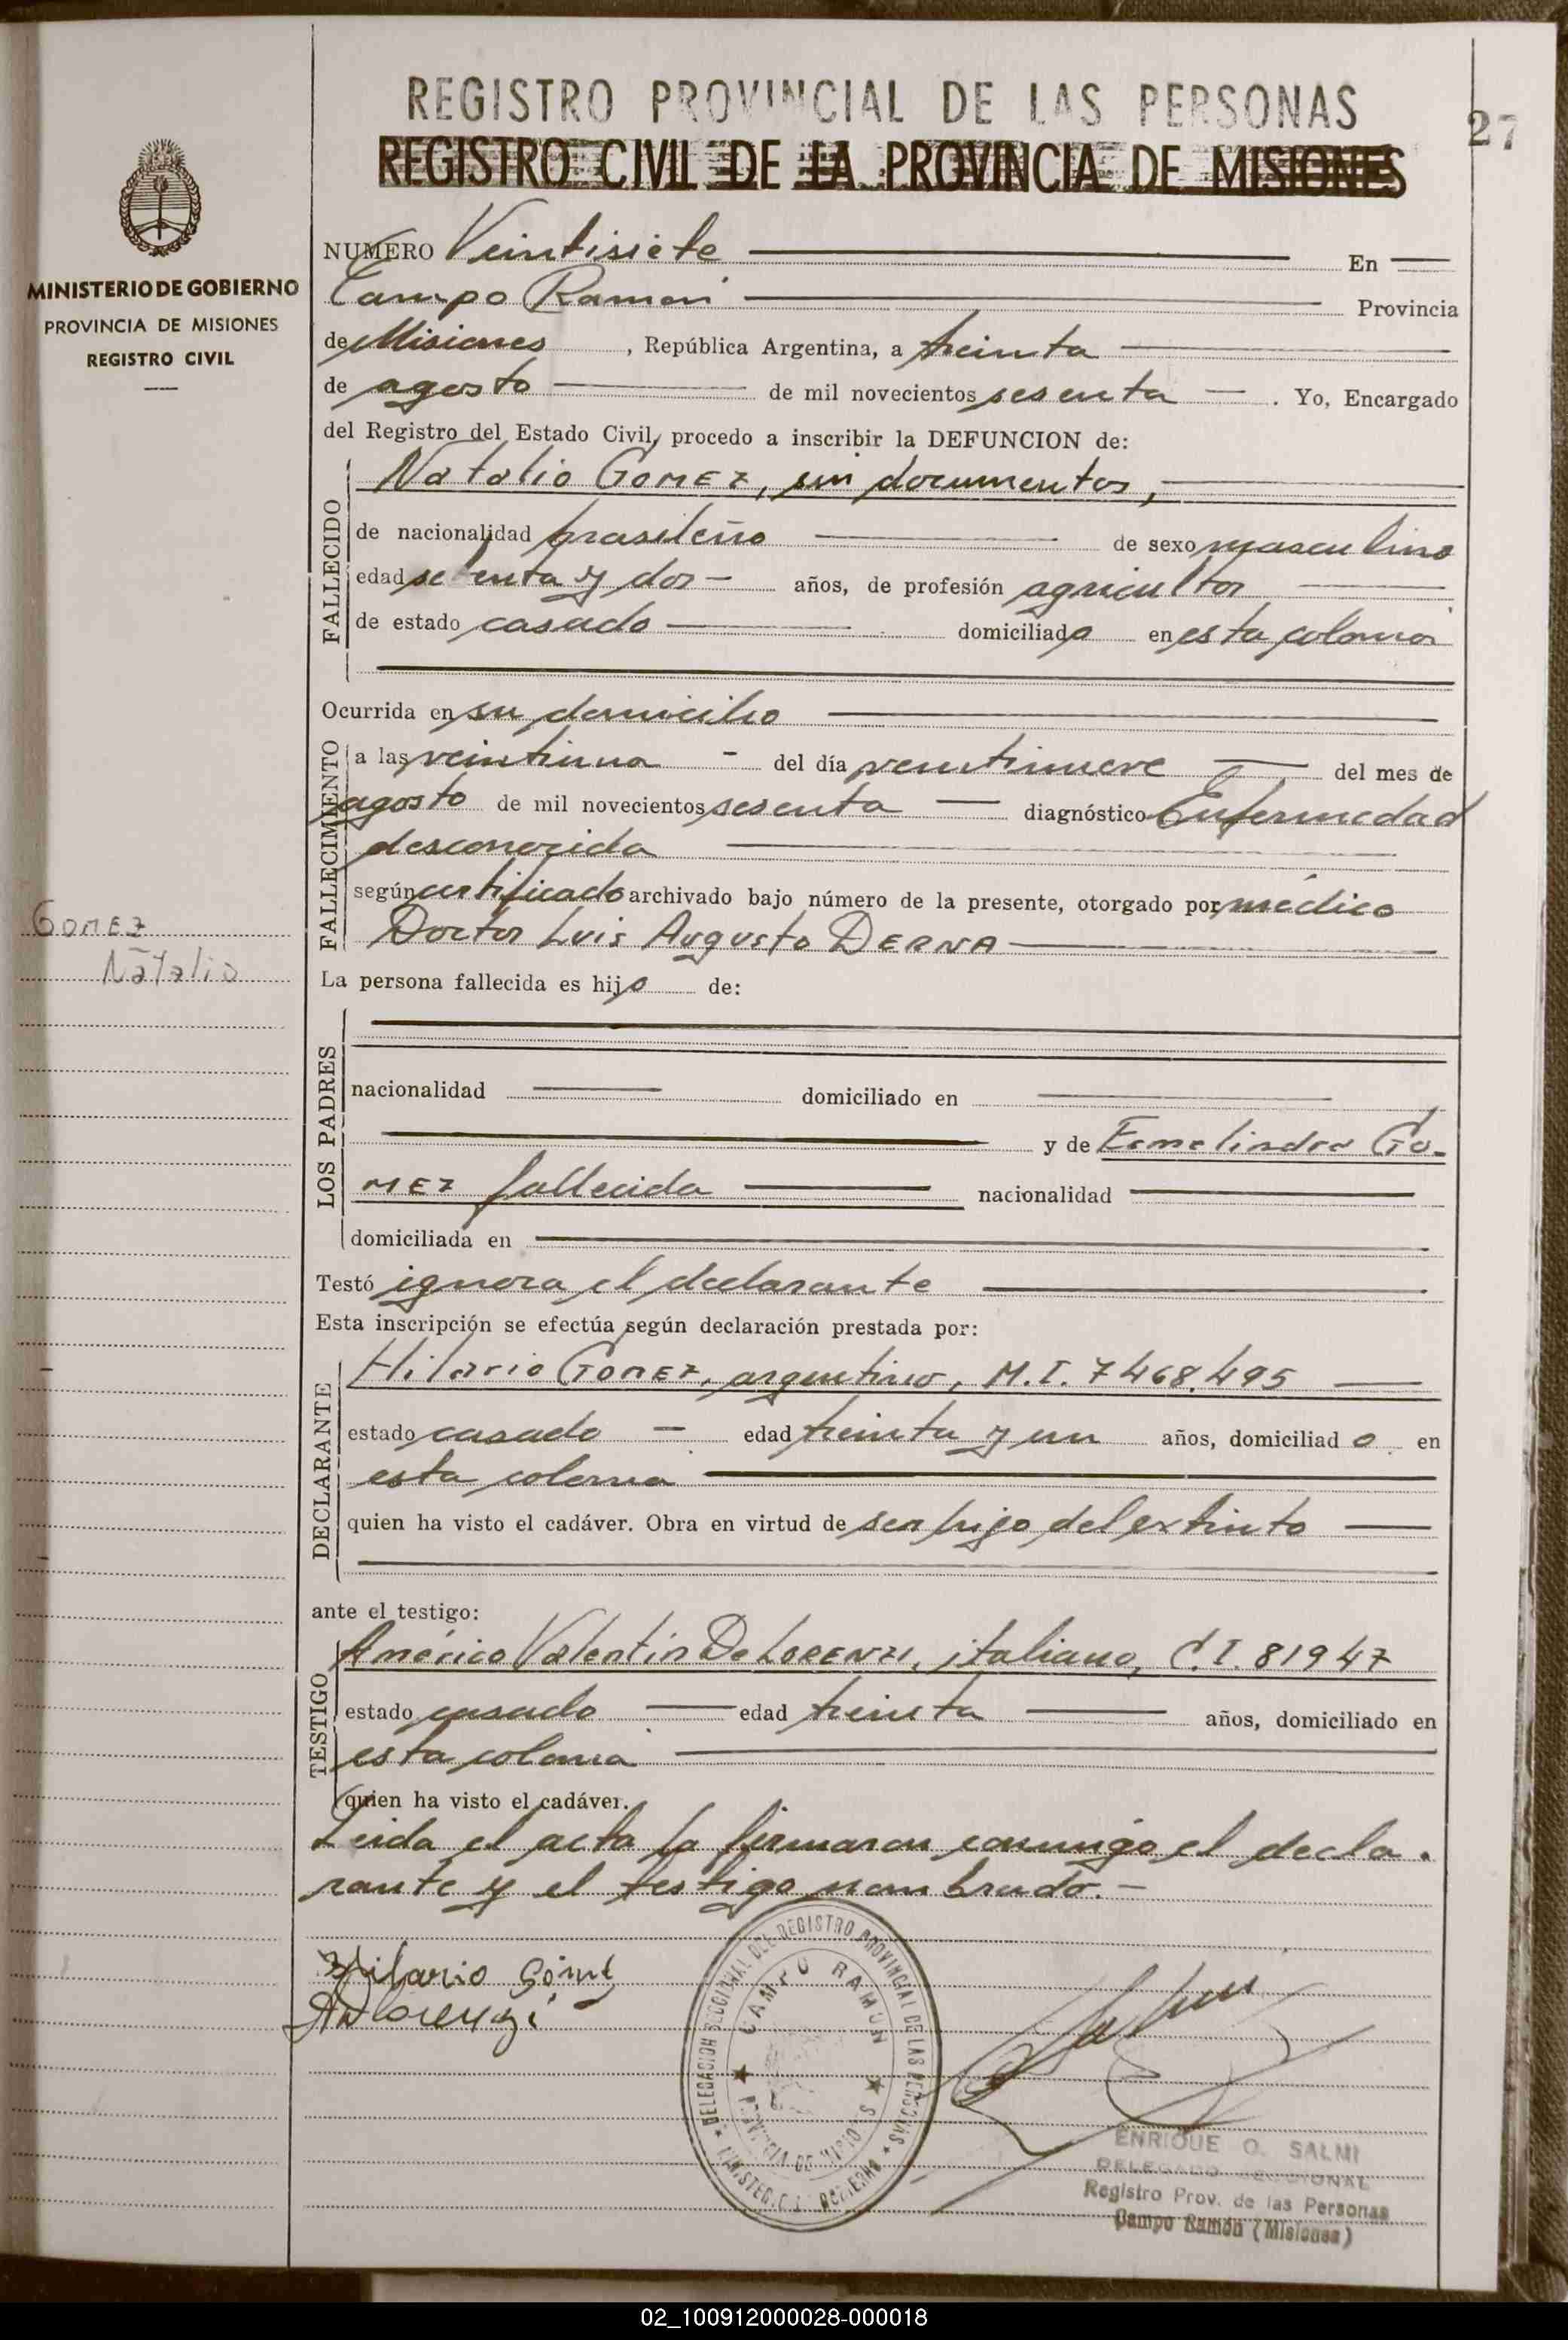 REGISTRO PROVINCIAL DE LAS PERSONAS
27
REGISTRO CIVIL DE LA PROVINCIA DE MISIONES
MINISTERIO DE GOBIERNO
PROVINCIA DE MISIONES
REGISTRO CIVIL
NUMERO Veintisiete En
Campo Ramon Provincia
de Misiones, República Argentina, a treinta
de agosto de mil novecientos sesenta. Yo, Encargado
del Registro del Estado Civil, procedo a inscribir la DEFUNCION de:
FALLECIDO
Natalio GOMEZ, sin documentos,
de nacionalidad brasileño de sexo masculino
edad y dos años, de profesión agricultor
de estado casado domiciliado en esta colonia
Ocurrida en su domicilio
FALLECIMIENTO
a las veintiuna del día veintinueve del mes de
agosto de mil novecientos sesenta diagnóstico Enfermedad
desconocida
según certificado archivado bajo número de la presente, otorgado por médico
Doctor Luis Augusto DERNA
Gomez
Natalio
La persona fallecida es hijo de:
LOS PADRES
nacionalidad domiciliado en
y de Ermelindra Go-
MEZ fallecida nacionalidad
domiciliada en
Testó ignora el declarante
Esta inscripción se efectúa según declaración prestada por:
DECLARANTE
Hilario GOMEZ, argentino, M.I. 7468.495
estado casado edad treinta y un años, domiciliado en
esta colonia
quien ha visto el cadáver. Obra en virtud de ser hijo del extinto
ante el testigo:
TESTIGO
Américo Valentín De LORENZI, italiano, C.I. 81947
estado casado edad treinta años, domiciliado en
esta colonia
quien ha visto el cadáver.
Leida el acta la firmaron conmigo el decla-
rante y el testigo nombrado.-
Hilario Gómez
DELEGACION SECCIONAL DEL REGISTRO PROVINCIAL DE LAS PERSONAS
CAMPO RAMON
PROVINCIA DE MISIONES
ENRIQUE O. SALMI
DELEGADO SECCIONAL
Registro Prov. de las Personas
Campo Ramón (Misiones)
02_100912000028-000018